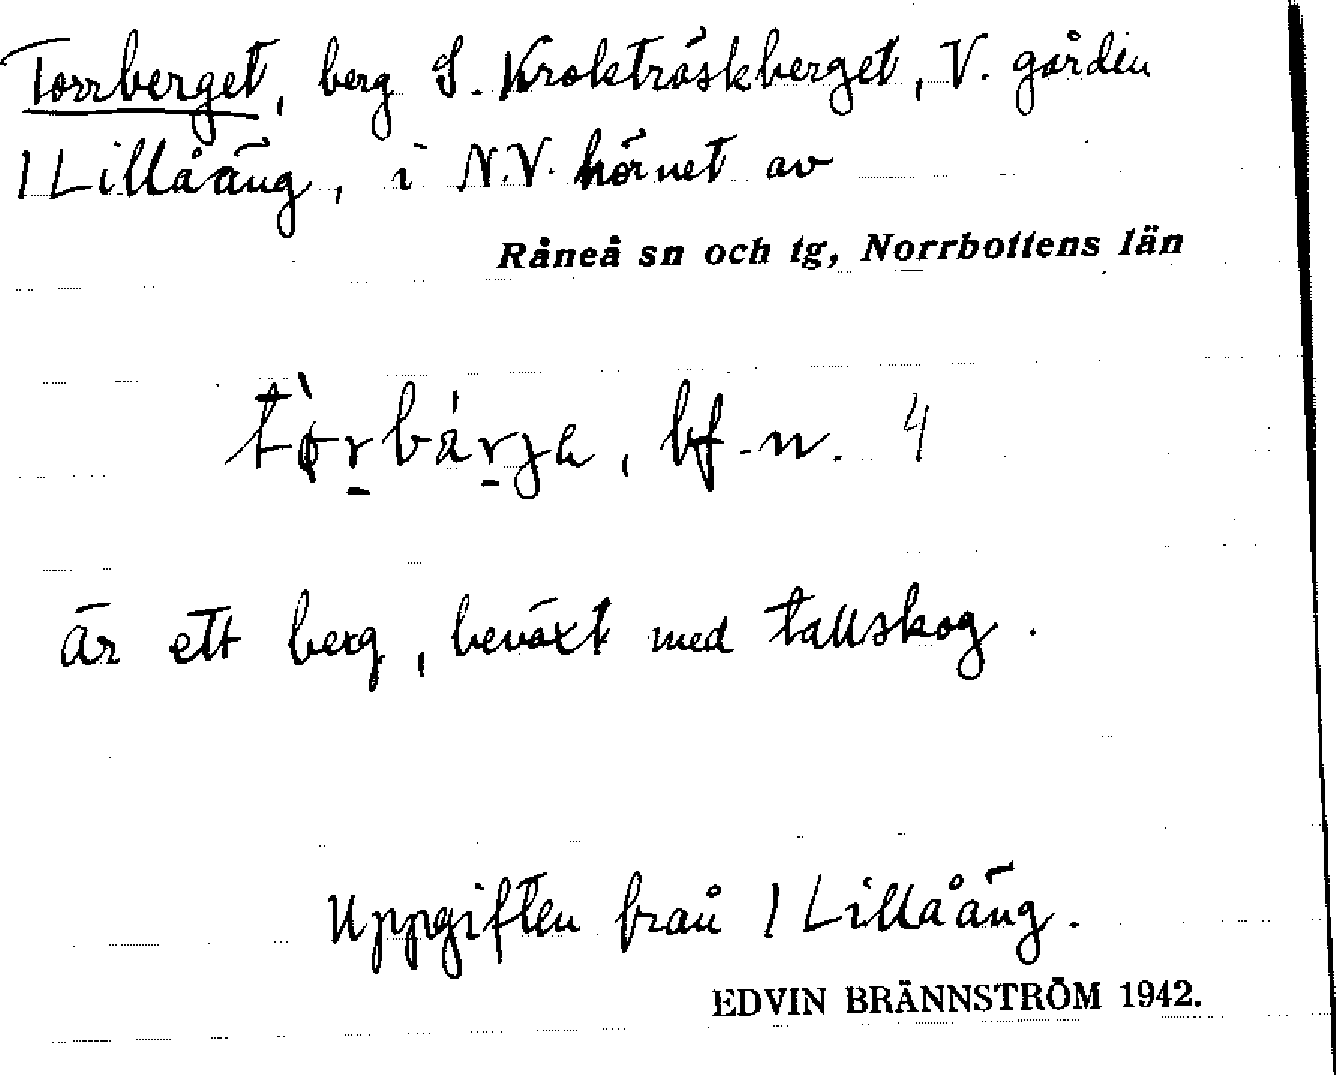 Torrberget, berg S. Krokträskberget, V. gården
1 Lillåäng, i N.V. hörnet av
Råneå sn och tg, Norrbottens län
bf. n. 4
är ett berg, beväxt med tallskog.
Uppgiften från 1 Lillåäng.
EDVIN BRÄNNSTRÖM 1942.